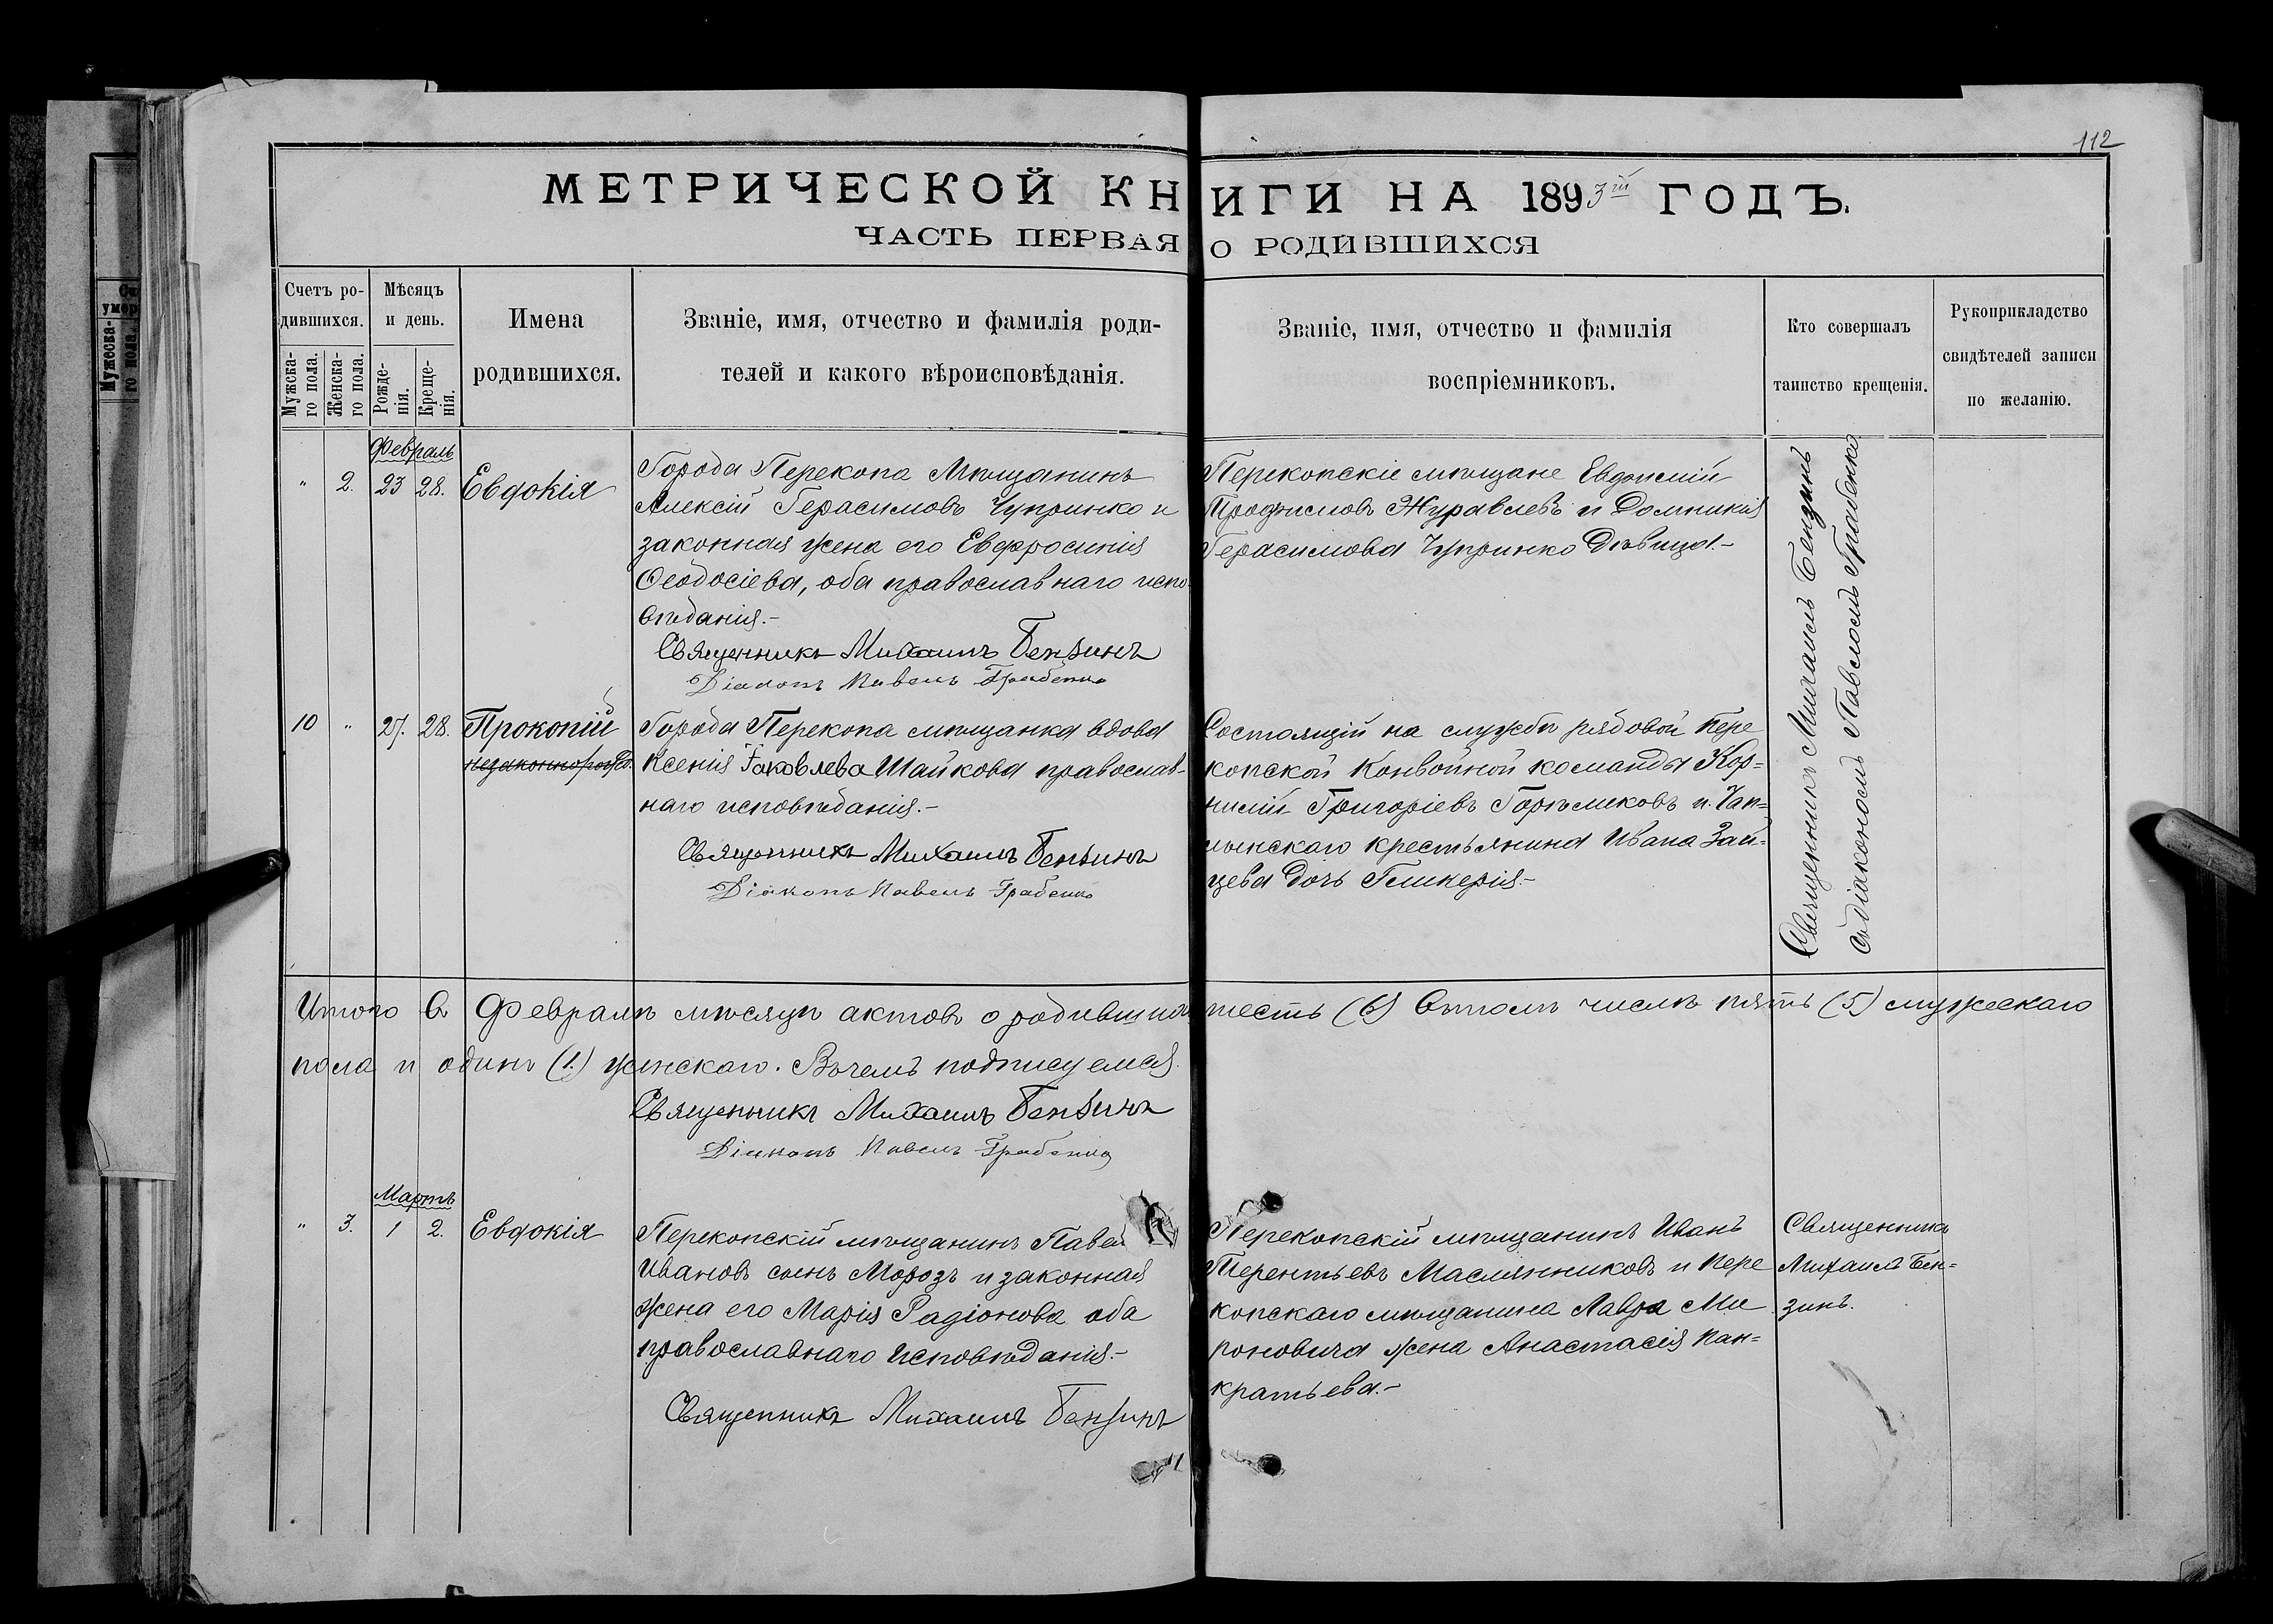 112
МЕТРИЧЕСКОЙ КНИГИ НА 1893й ГОДЪ.
ЧАСТЬ ПЕРВАЯ О РОДИВШИХСЯ
Счетъ ро-
дившихся.
Мужска-
го пола.
Женска-
го пола.
Мѣсяцъ
и день.
Рожде-
нія.
Креще-
нія.
Имена
родившихся.
Званіе, имя, отчество и фамилія роди-
телей и какого вѣроисповѣданія.
Званіе, имя, отчество и фамилія
воспріемниковъ.
Кто совершалъ
таинство крещенія.
Рукоприкладство
свидѣтелей записи
по желанію.
Февраль
" 2. 23 28. Евдокія
Города Перекопа Мѣщанинъ
Алексій Герасимовъ Чупринко и
законная жена его Евфросинія
Ѳеодосіева, оба православнаго испо-
вѣданія.-
Священникъ Михаилъ Бензинъ
Діаконъ Павелъ Грабенко
Перекопскіе мѣщане Евдокимій
Трофимовъ Журавлевъ и Домникія
Герасимова Чупринко Дѣвица.-
Священникъ Михаилъ Бензинъ
съ діакономъ Павломъ Грабенко
10 " 27. 28. Прокопій
незаконнорожд.
Города Перекопа мѣщанка вдова
Ксенія Іаковлева Шайкова православ-
наго исповѣданія.-
Священникъ Михаилъ Бензинъ
Діаконъ Павелъ Грабенко
Состоящій на службѣ рядовой Пере
копской Конвойной команды Кор=
нилій Григоріевъ Горѣликовъ и Чап=
лынскаго крестьянина Ивана Зай=
цева дочь Гликерія.-
Итого въ Февралѣ мѣсяцѣ актовъ о родившихся шесть (6) втомъ числѣ пять (5) мужескаго
пола и одинъ (1.) женскаго. Въ чемъ подписуемся.
Священникъ Михаилъ Бензинъ
Діаконъ Павелъ Грабенко
Мартъ
" 3. 1 2. Евдокія
Перекопскій мѣщанинъ Павел
Ивановъ сынъ Морозъ и законная
жена его Марія Радіонова оба
православнаго исповѣданія.-
Священникъ Михаилъ Бензинъ
Перекопскій мѣщанинъ Иванъ
Терентьевъ Маслянниковъ и Пере
копскаго мѣщанина Лавра Ми
роновича жена Анастасія Пан=
кратьева.-
Священникъ
Михаилъ Бен=
зинъ.